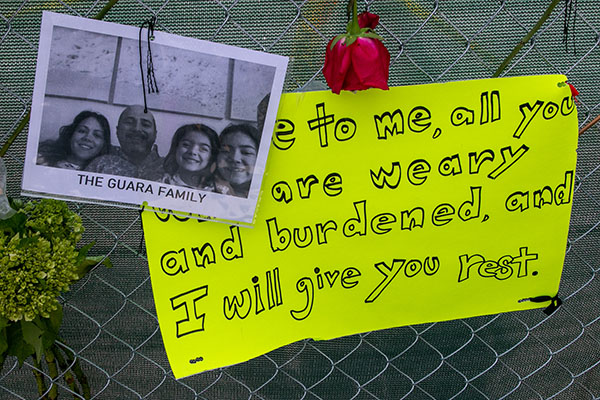 THE GUARA FAMILY
to me, all you
are weary
and burdened, and
I will give you rest.